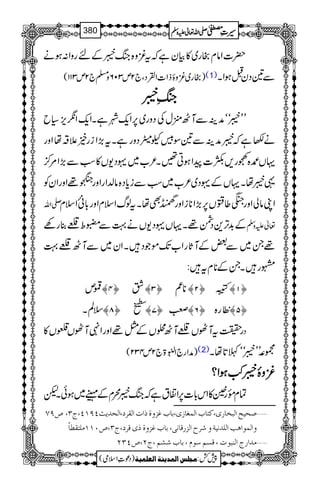 سیرتِ مصطفی صلی اللہ تعالیٰ علیہ وسلم
380
حضرت امام بخاری کا بیان ہے کہ یہ غزوہ جنگ خیبر کے لئے روانہ ہونے
سے تین دن قبل ہوا۔(1) (بخاری غزوۂ ذات القرد، ج۲ ص۶۰۳ و مسلم ج۲ ص۱۱۳)
جنگِ خیبر
”خیبر“ مدینہ سے آٹھ منزل کی دوری پر ایک شہر ہے۔ ایک انگریز سیاح
نے لکھا ہے کہ خیبر مدینہ سے تین سو بیس کیلو میٹر دور ہے۔ یہ بڑا زرخیز علاقہ تھا اور
یہاں عمدہ کھجوریں بکثرت پیدا ہوتی تھیں۔ عرب میں یہودیوں کا سب سے بڑا مرکز
یہی خیبر تھا۔ یہاں کے یہودی عرب میں سب سے زیادہ مالدار اور جنگجو تھے اور ان کو
اپنی مالی اور جنگی طاقتوں پر بڑا ناز اور گھمنڈ بھی تھا۔ یہ لوگ اسلام اور بانیِ اسلام صلی اللہ
تعالیٰ علیہ وسلم کے بدترین دشمن تھے۔ یہاں یہودیوں نے بہت سے مضبوط قلعے بنا رکھے
تھے جن میں سے بعض کے آثار اب تک موجود ہیں۔ ان میں سے آٹھ قلعے بہت
مشہور ہیں۔ جن کے نام یہ ہیں:
﴿۱﴾ کتیبہ ﴿۲﴾ ناعم ﴿۳﴾ شق ﴿۴﴾ قموص
﴿۵﴾ نطارہ ﴿۶﴾ صعب ﴿۷﴾ سطیخ ﴿۸﴾ سلالم۔
در حقیقت یہ آٹھوں قلعے آٹھ محلوں کے مثل تھے اور انہی آٹھوں قلعوں کا
مجموعہ ”خیبر“ کہلاتا تھا۔(2) (مدارج النبوۃ ج۲ ص۲۳۴)
غزوۂ خیبر کب ہوا؟
تمام مؤرخین کا اس بات پر اتفاق ہے کہ جنگِ خیبر محرم کے مہینے میں ہوئی۔ لیکن
1……صحیح البخاری، کتاب المغازی، باب غزوۃ ذات القرد، الحدیث:۴۱۹۴، ج۳، ص۷۹
والمواھب اللدنیۃ و شرح الزرقانی، باب غزوۃ ذی قرد، ج۳، ص۱۱۰ ملتقطاً
2……مدارج النبوت، قسم سوم، باب ششم، ج۲، ص۲۳۴
پیش کش: مجلس المدینۃ العلمیۃ (دعوتِ اسلامی)